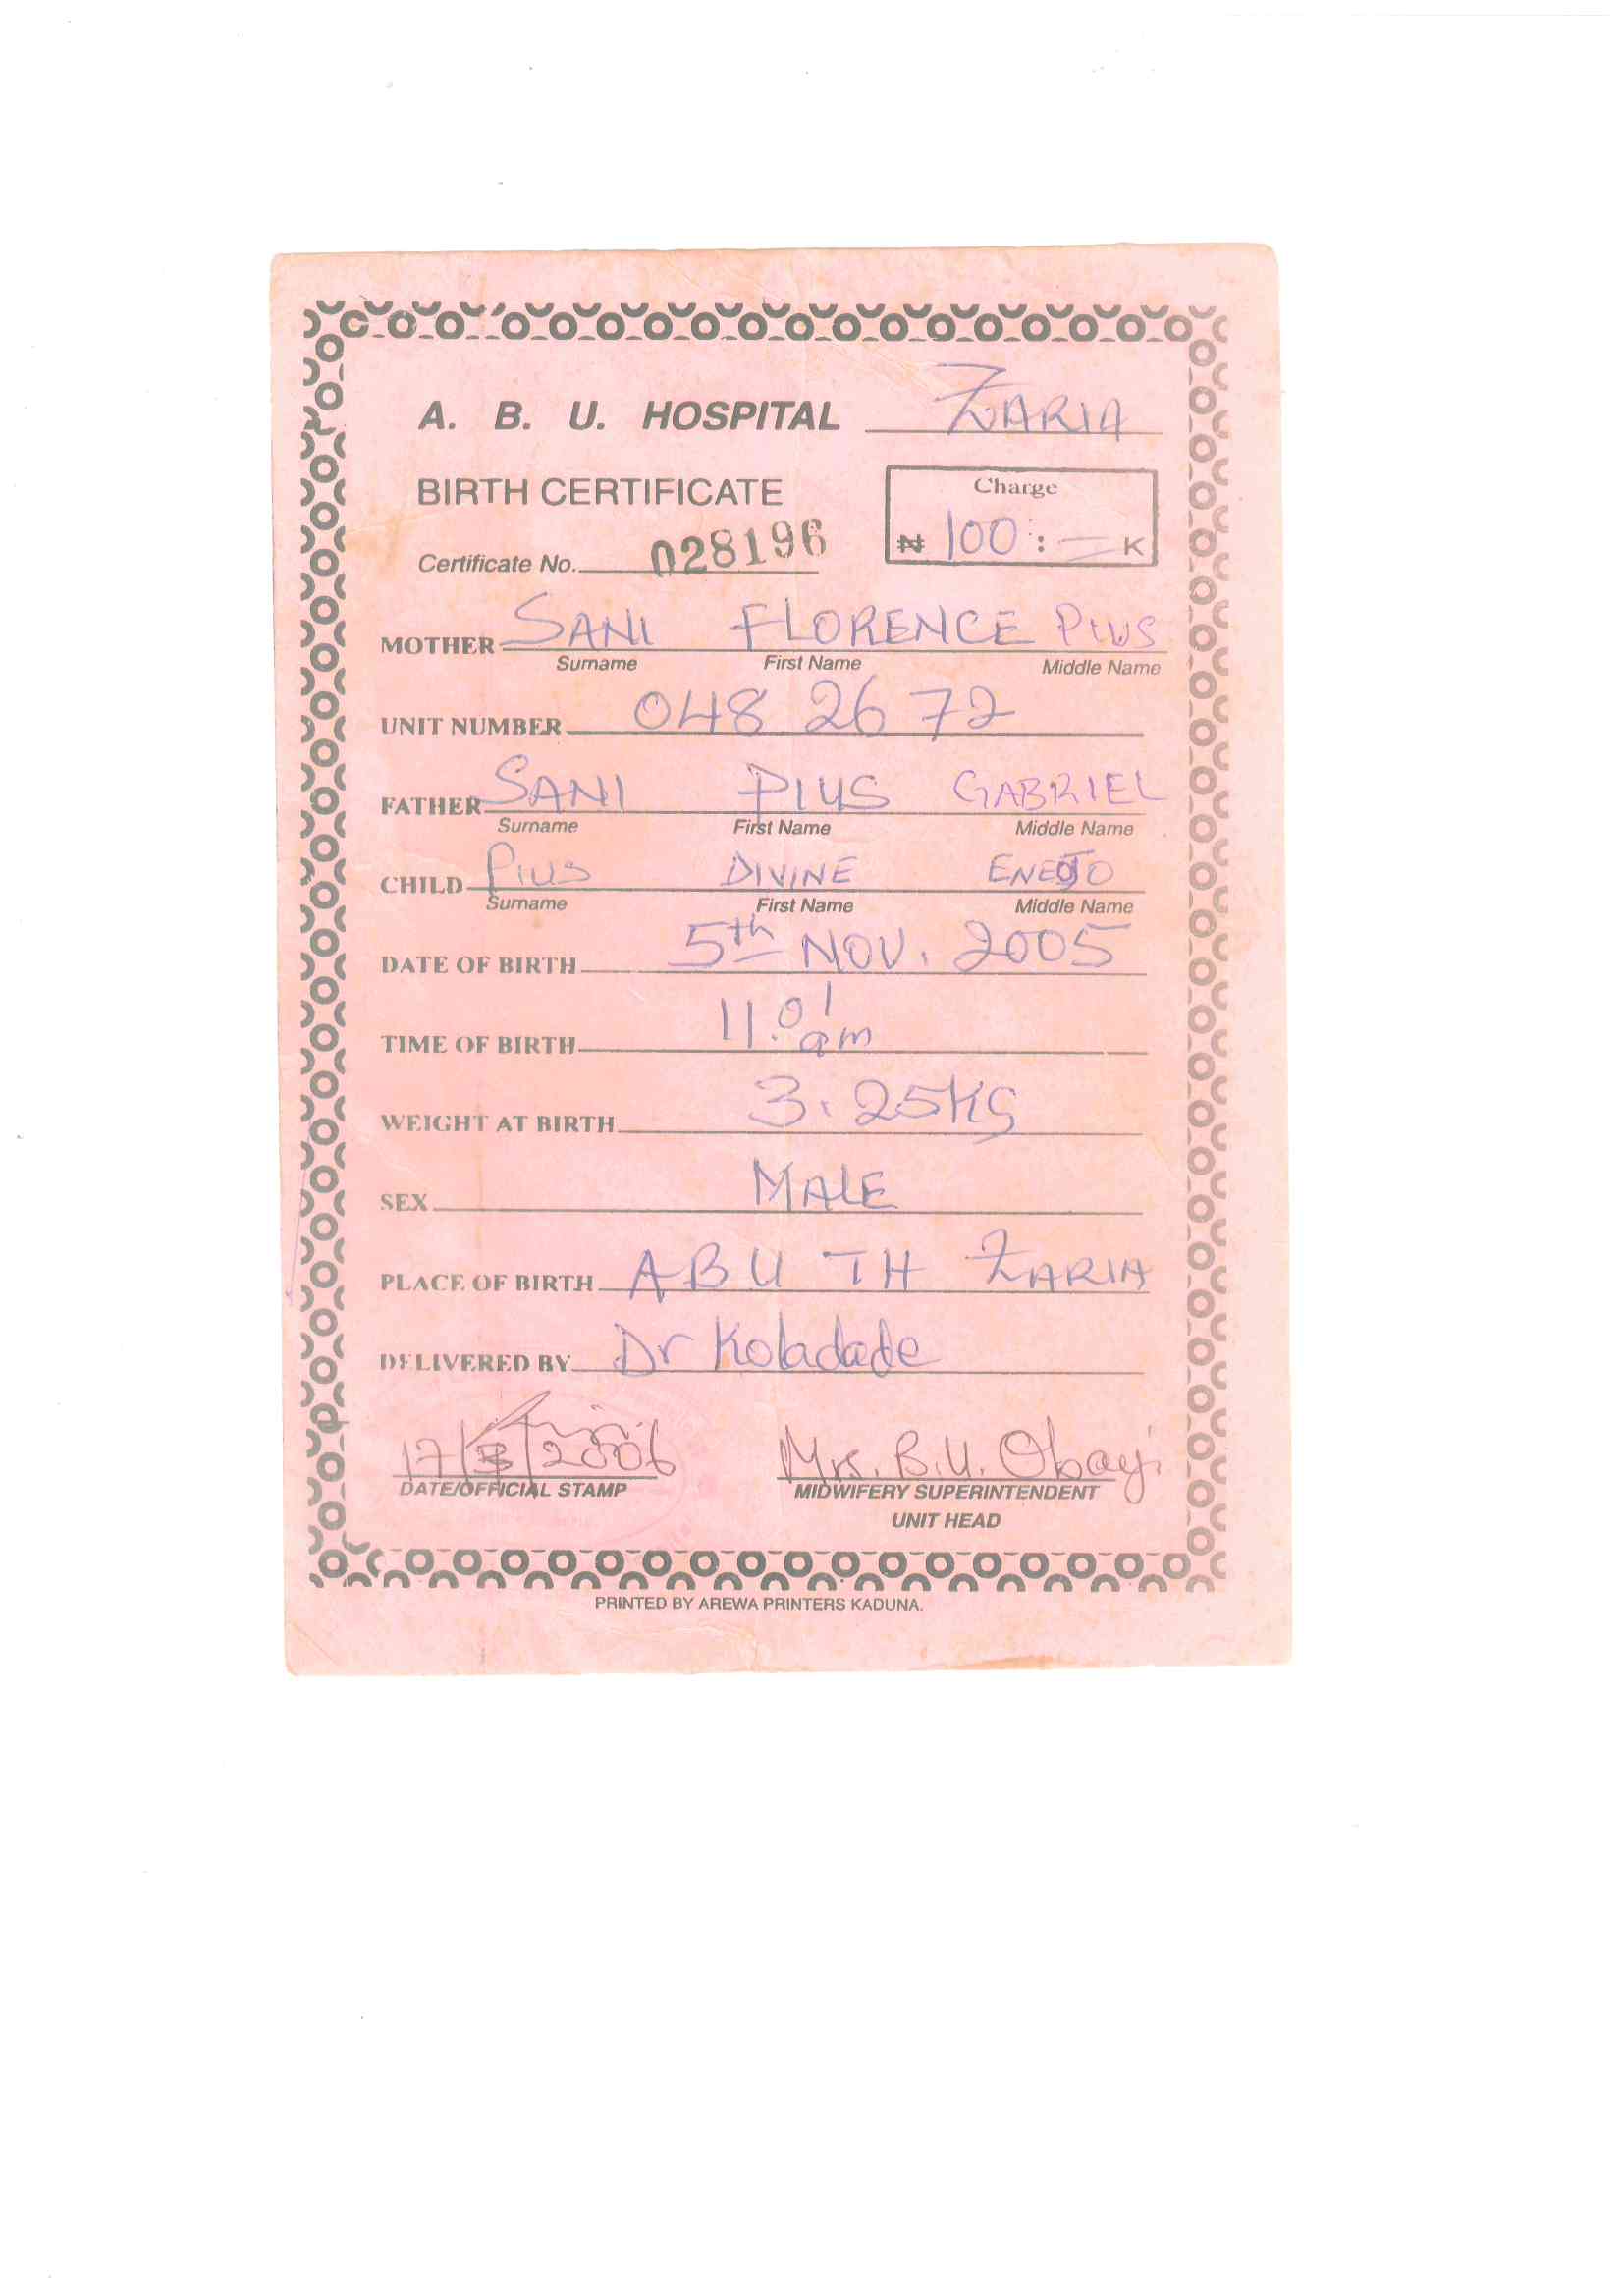 A. B. U. HOSPITAL ZARIA
BIRTH CERTIFICATE
Charge
₦ 100 : = K
Certificate No. 028196
MOTHER SANI FLORENCE PIUS
Surname First Name Middle Name
UNIT NUMBER 048 26 72
FATHER SANI PIUS GABRIEL
Surname First Name Middle Name
CHILD PIUS DIVINE ENEOJO
Surname First Name Middle Name
DATE OF BIRTH 5th NOV. 2005
TIME OF BIRTH 11.01 am
WEIGHT AT BIRTH 3.25KG
SEX MALE
PLACE OF BIRTH ABU TH ZARIA
DELIVERED BY Dr Koladade
17/3/2006 Mrs. B.U. Obayi
DATE/OFFICIAL STAMP MIDWIFERY SUPERINTENDENT
UNIT HEAD
PRINTED BY AREWA PRINTERS KADUNA.